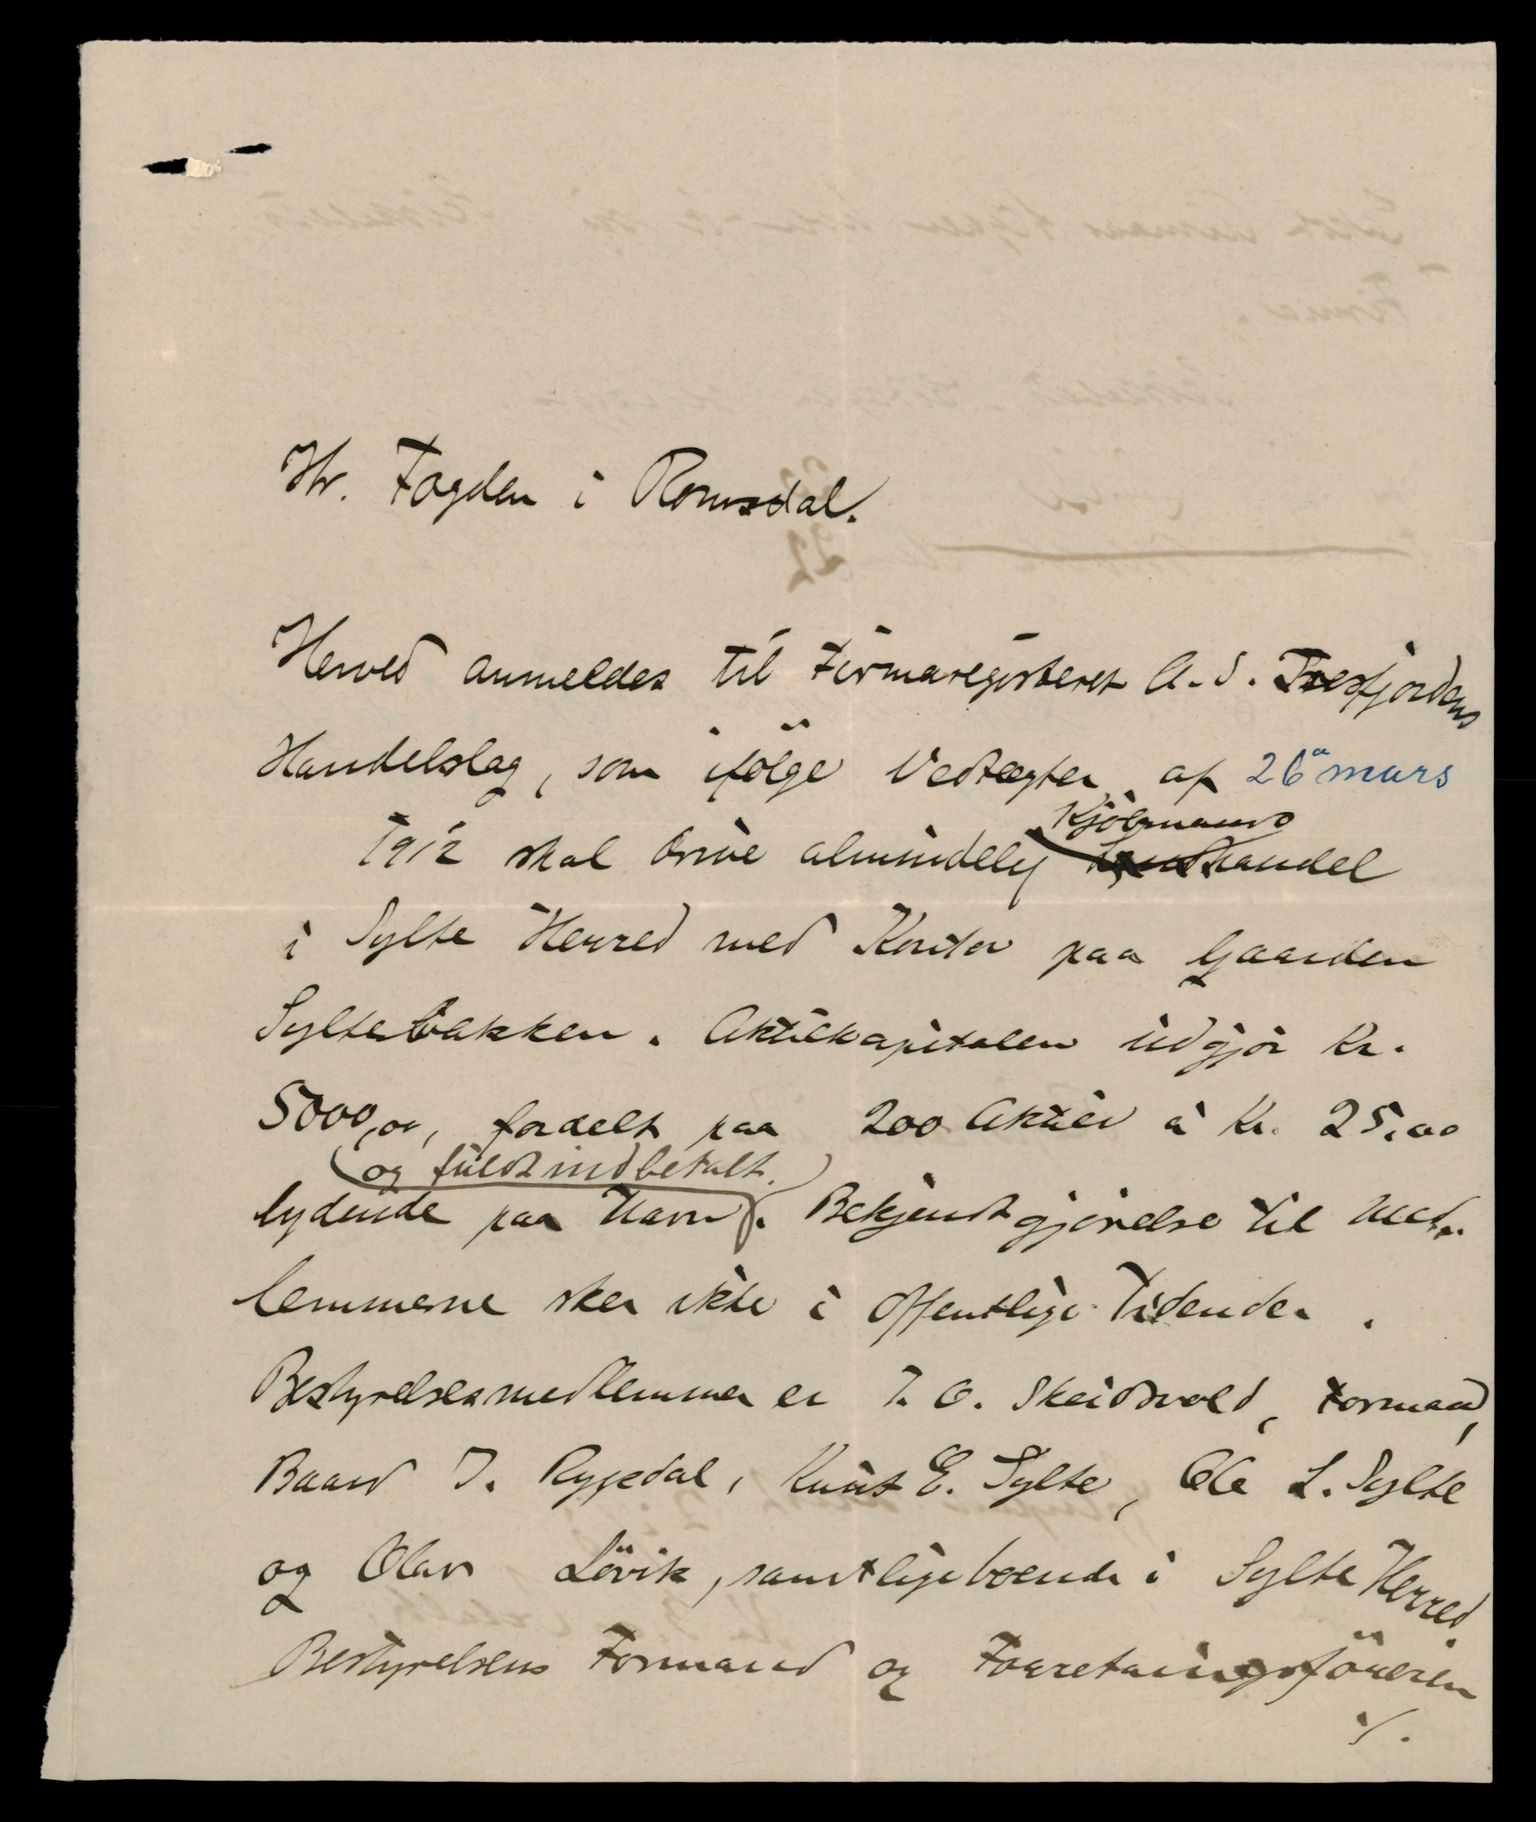 Hr. Fogden i Romsdal.
Herved anmeldes til Firmaregisteret A.S. Tresfjordens
Handelslag, som ifölge Vedtægter af 26a mars
Kjöbmands
1912 skal drive almindelig Landhandel
i Sylte Herred med Kontor paa Gaarden
Syltebakken. Aktiekapitalen udgjör Kr.
5000,00, fordelt paa 200 Aktier à Kr. 25.00
og fuldt indbetalt.
lydende paa Navn. Bekjendtgjörelse til Med-
lemmerne sker ikke i offentlige Tidender.
Bestyrelsesmedlemmer er T. O. Skeidsvold, Formand,
Baard J. Rypdal, Knut E. Sylte, Ole L. Sylte
og Olav Lövik, samtlige boende i Sylte Herred.
Bestyrelsens Formand og Forretningsföreren
./.